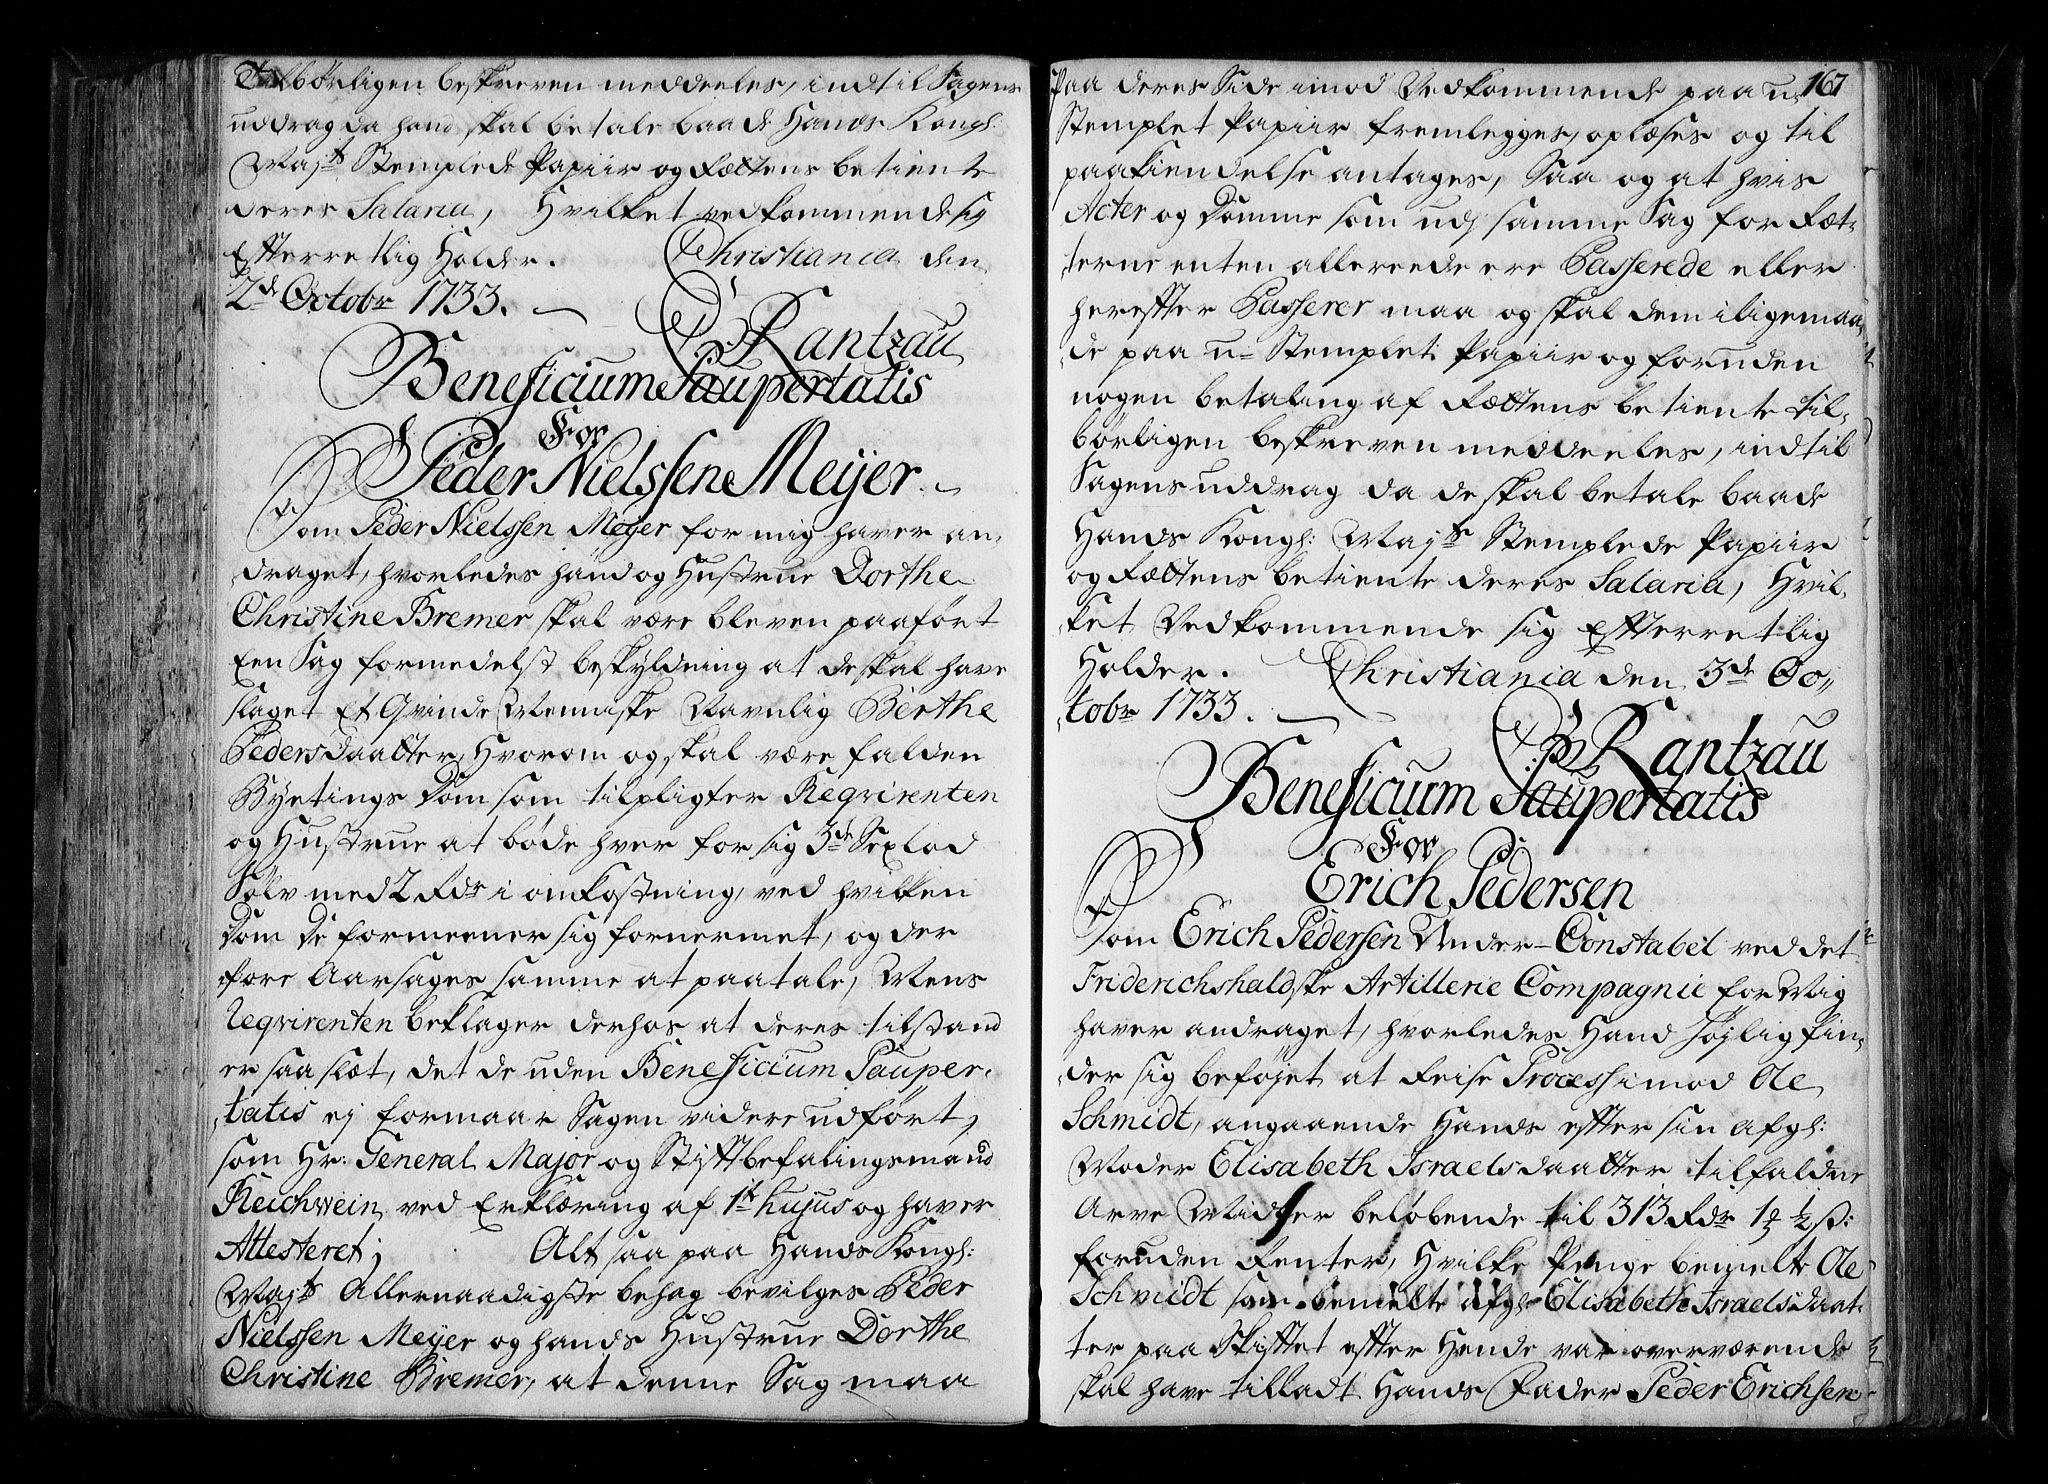 Tilbørligen beskreven meddeeles, indtil Sagens
uddrag da hand skal betale baade Hands Kongl:
Majts Stemplede Papiir og Rættens betiente
deres Salaria, Hvilket vedkommende sig
Efterretlig Holder. Christiania den
2de Octobr 1733.
Rantzau
Beneficium Paupertatis
For
Peder Nielssen Meyer.
Som Peder Nielssen Meyer for mig haver an-
draget, hvorledes hand og Hustrue Dorthe
Christine Bremer skal være bleven paaført
Een Sag formedelst beskyldning at de skal have
slaget Et Qvinde Menniske Navnlig Berthe
Pedersdaatter, Hvorom og skal være falden
Byetings Dom som tilpligter Reqvirenten
og Hustrue at bøde hver for sig 3de Sexlod
Sølv med 2 Rdr i omkostning, ved hvilken
Dom De formeener sig fornermet, og der
fore Aarsages samme at paatale, Mens
Reqvirenten beklager derhos at deres tilstand
er saa slæt, det de uden Beneficium Pauper-
tatis ej formaar Sagen videre udført,
som Hr: General Major og Stiftbefalingsmand
Reichwein ved Erklæring af 1te hujus og haver
Attesteret; Alt saa paa Hands Kongl:
Majts Allernaadigste behag bevilges Peder
Nielssen Meyer og hands Hustrue Dorthe
Christine Bremer, at denne Sag maa
167
Paa deres Side imod Vedkommende paa u-
Stemplet Papiir fremlegges, oplæses og til
paakiendelse antages, Saa og at hvis
Acter og Domme som udj samme Sag for Ræt-
terne enten allereede ere Passerede eller
herefter Passerer maa og skal dem iligemaa-
de paa u- Stemplet Papiir og foruden
nogen betaling af Rættens betiente til-
børligen beskreven meddeeles, indtil
Sagens uddrag da de skal betale baade
Hands Kongl: Majts Stemplede Papiir
og Rættens betiente deres Salaria, Hvil-
ket Vedkommende sig Efterretlig
Holder. Christiania den 3de Oc-
tobr 1733.
Rantzau
Beneficium Paupertatis
For
Erich Pedersen
Som Erich Pedersen Under-Constabel ved det
Friderichshaldske Artillerie Compagnie for Mig
haver andraget, hvorledes Hand højlig fin-
der sig beføjet at Reise Process imod Ole
Schmidt, angaaende Hands efter sin afgl:
Moder Elisabeth Israelsdaatter tilfaldne
Arve Midler beløbende til 313 Rdr 1 ½ s:
foruden Renter, Hvilke Penge bemelte Ole
Schmidt som bemelte afgl: Elisabeth Israelsdaat-
ter paa Skiftet efter Hende var overværende
skal have tilladt Hands Fader Peder Erichsen